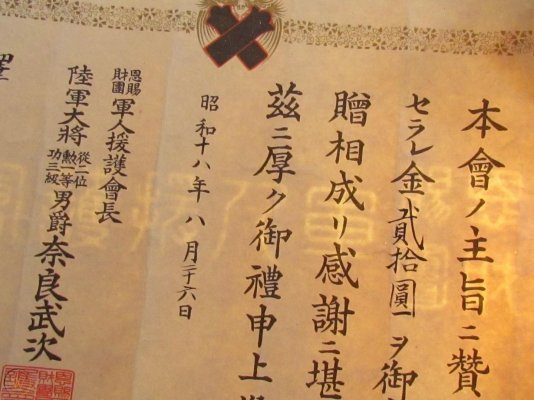 本會ノ主旨ニ贊
セラレ金貳拾圓一ヲ御
贈相成リ感謝ニ堪
茲ニ厚ク御禮申上
昭和十八年八月二十六日
恩賜財團軍人援護會長
陸軍大將從二位勲一等功三級男爵奈良武次